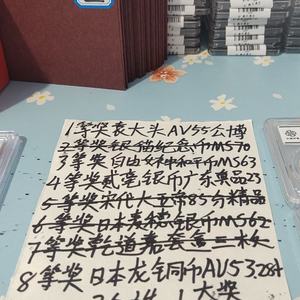 1等奖袁大头AU55公博
2等奖银猫纪念币MS70
3等奖自由女神和平币MS63
4等奖贰毫银币广东奥品23
5等奖宋代大五帝85分精品
6等奖日本麦穗银币MS62
7等奖乾道嘉套盒三枚
8等奖日本龙铜币AU53284
大奖